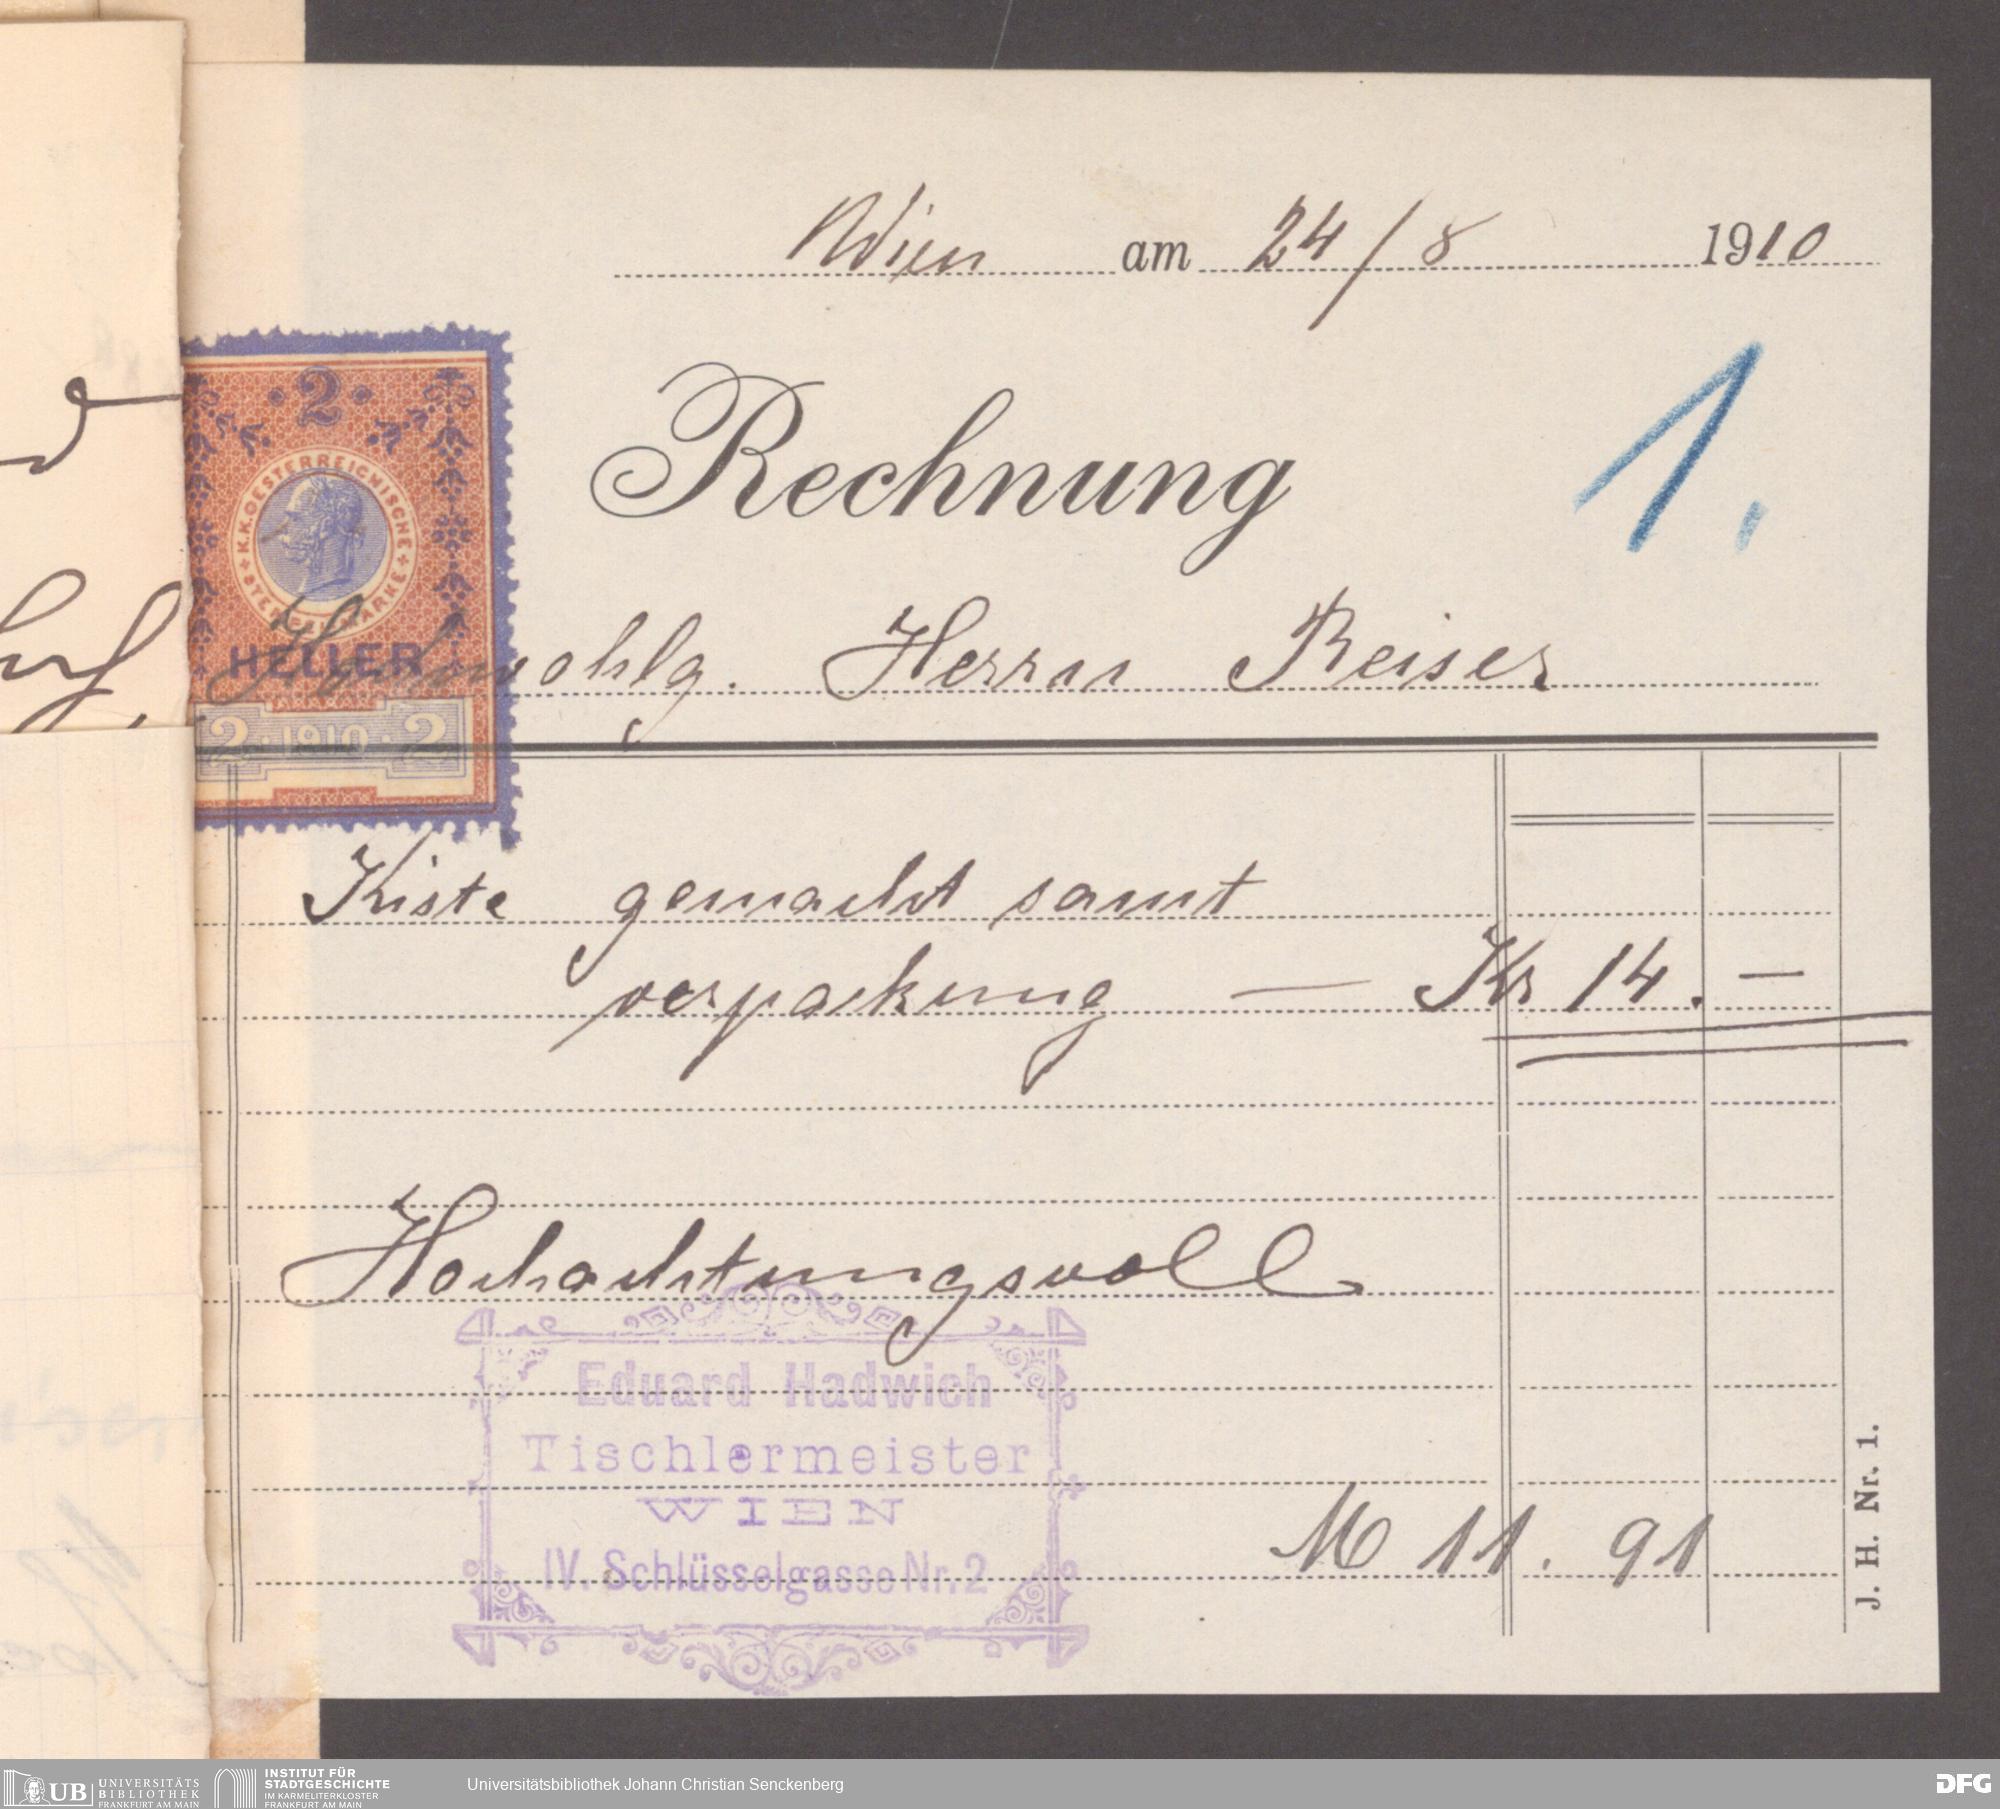 Wien am 24/8 1910
2
K.K. OESTERREICHISCHE STEMPELMARKE
Rechnung
1.
HELLER
Hochwohlg. Herrn Reiser
2 · 1910 · 2
Kiste gemacht samt
verpackung — Kr 14. —
Hochachtungsvoll
Eduard Hadwich
Tischlermeister
WIEN
IV. Schlüsselgasse Nr. 2
M 11. 91
J. H. Nr. 1.
UB UNIVERSITÄTS
BIBLIOTHEK
FRANKFURT AM MAIN
INSTITUT FÜR
STADTGESCHICHTE
IM KARMELITERKLOSTER
FRANKFURT AM MAIN
Universitätsbibliothek Johann Christian Senckenberg
DFG